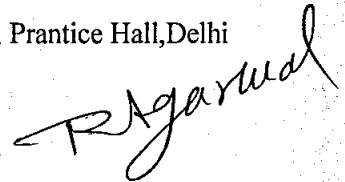 Prantice Hall,Delhi
RAgarwal